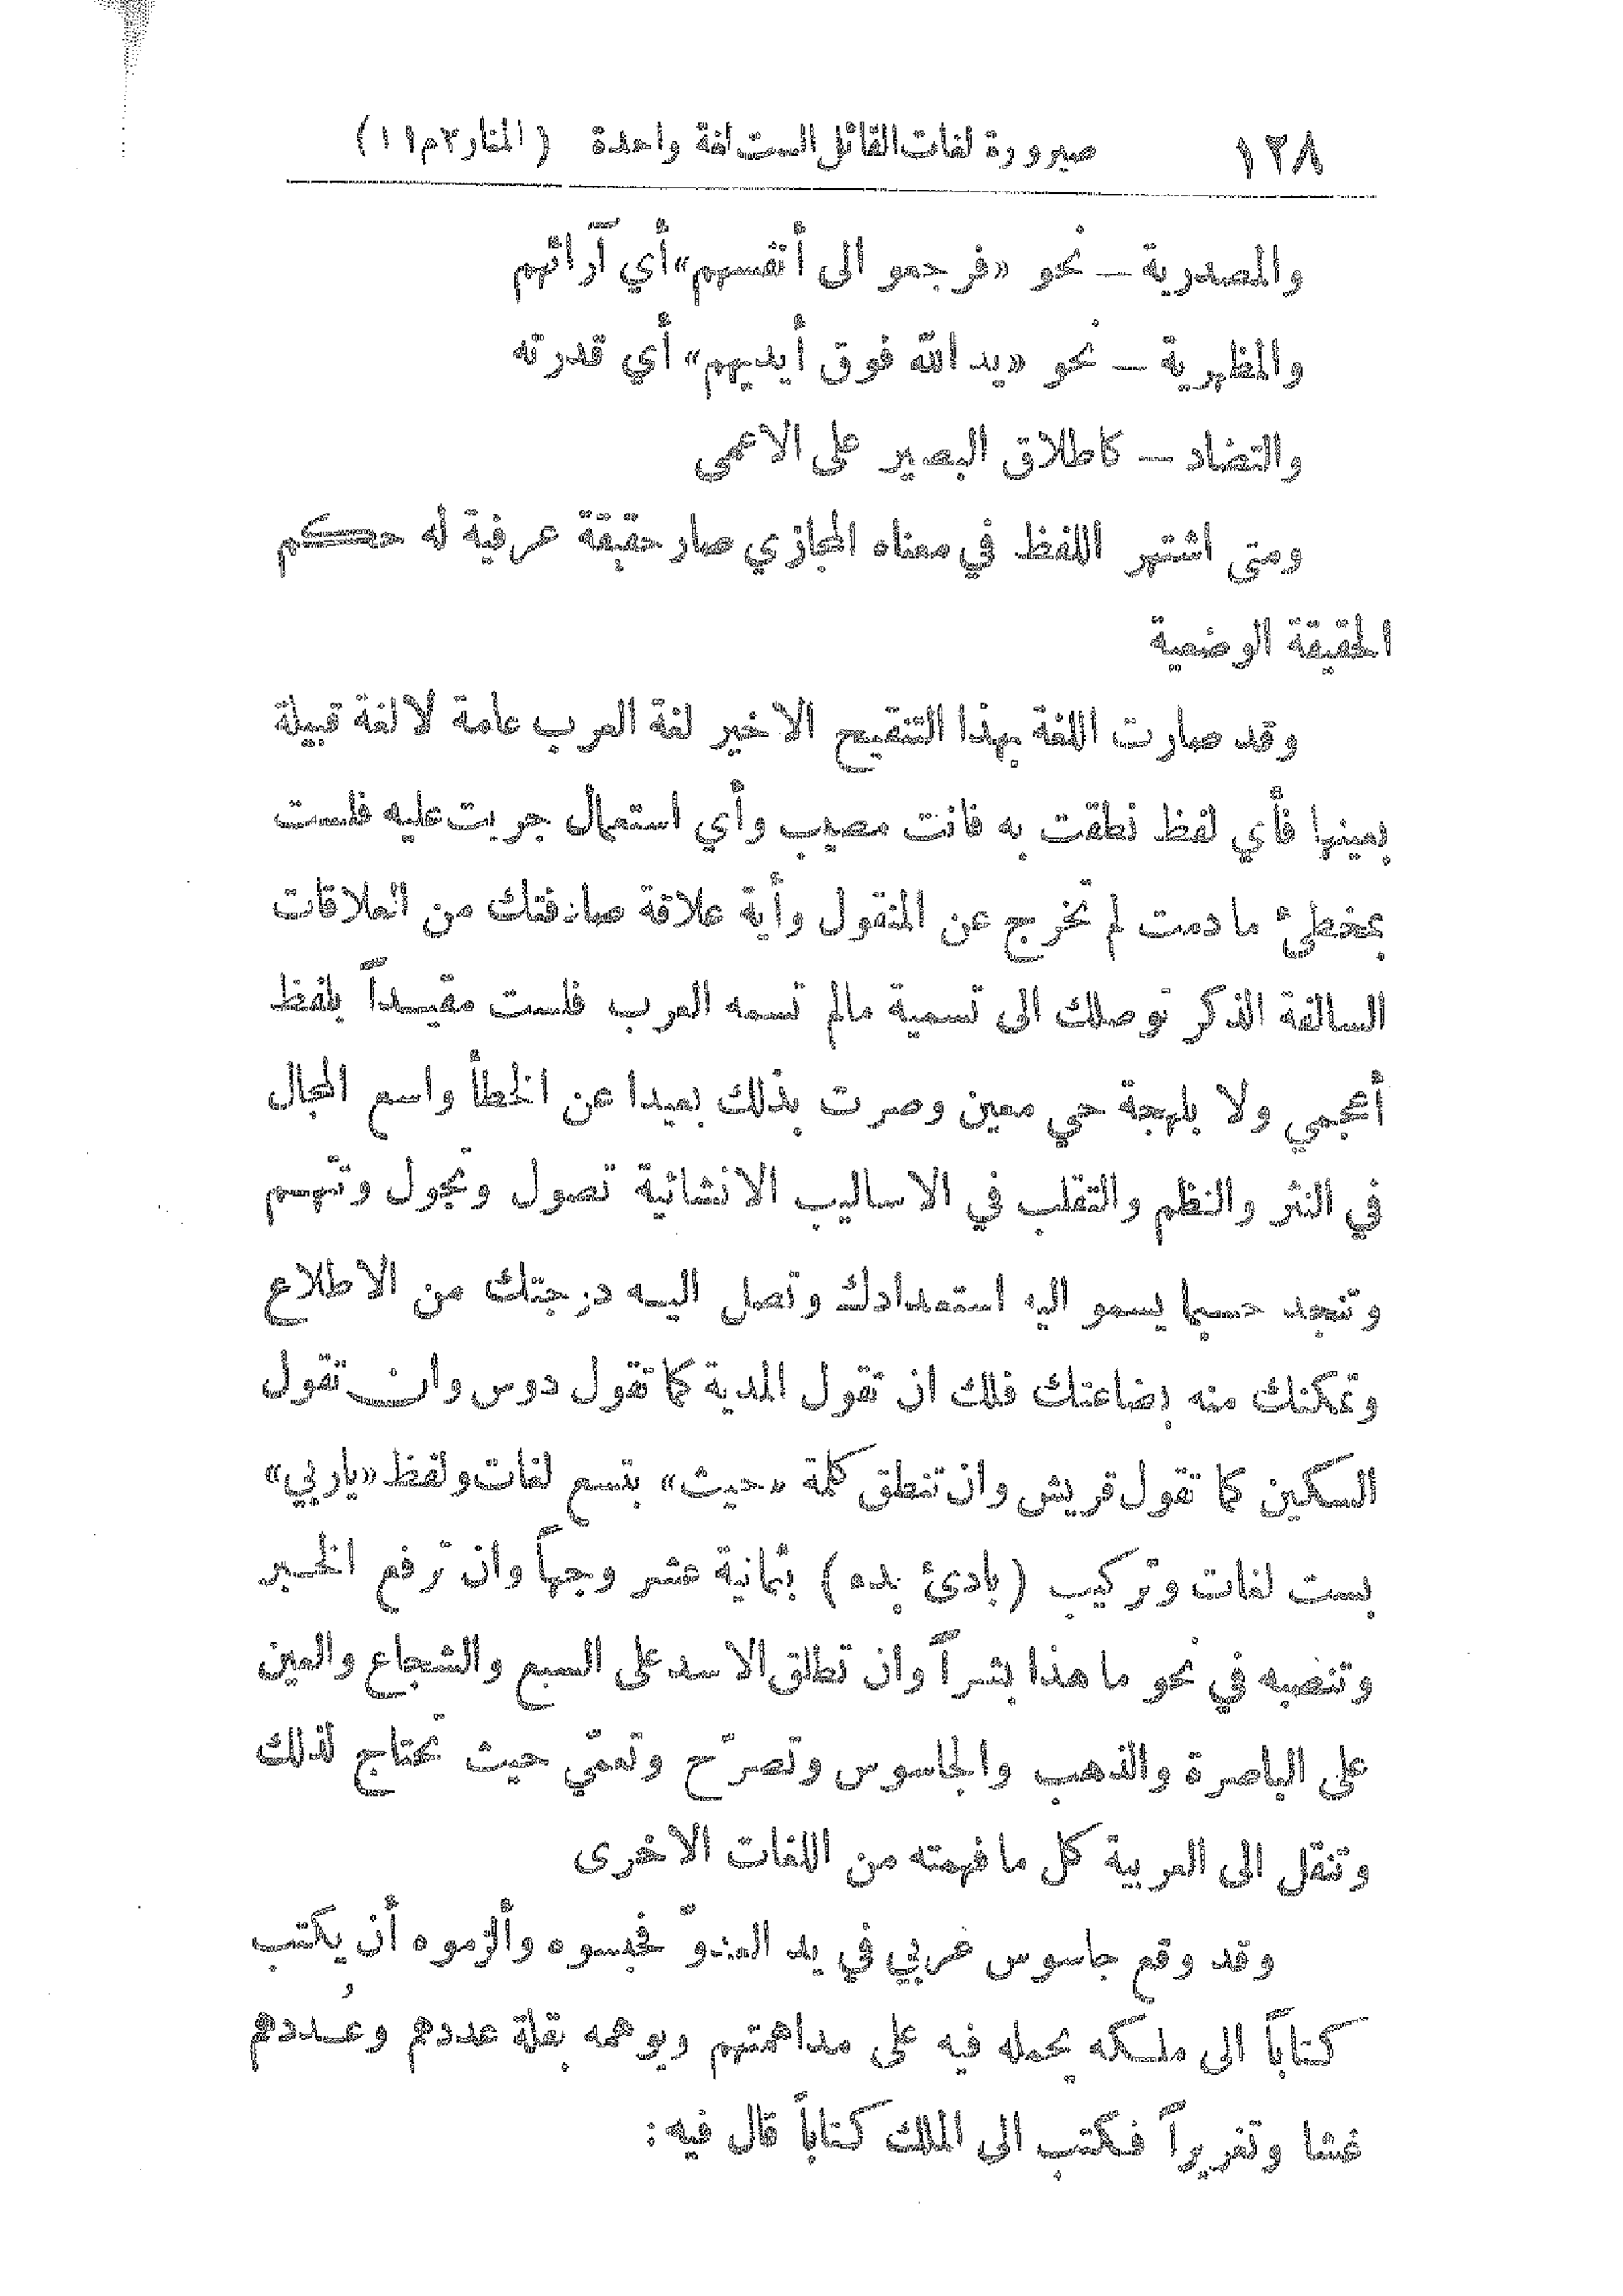 ١٢٨ صيرورة لغات القائل الست لغة واحدة (المنار٢م١١)
والمصدرية — نحو «فرجعو الى أنفسهم» أي آرائهم
والمظهرية — نحو «يد الله فوق أيديهم» أي قدرته
والتضاد — كاطلاق البصير على الاعمى
ومتى اشتهر اللفظ في معناه المجازي صار حقيقة عرفية له حكم
الحقيقة الوضعية
وقد صارت اللغة بهذا التنقيح الاخير لغة العرب عامة لا لغة قبيلة
بعينها فأي لفظ نطقت به فانت مصيب وأي استعمال جريت عليه فلست
بمخطئ ما دمت لم تخرج عن المنقول وأية علاقة صادفتك من العلاقات
السالفة الذكر توصلك الى تسمية مالم تسمه العرب فلست مقيداً بلفظ
أعجمي ولا بلهجة حي معين وصرت بذلك بعيدا عن الخطأ واسع المجال
في النثر والنظم والتقلب في الاساليب الانشائية تصول وتجول وتتهم
وتنجد حسبما يسمو اليه استعدادك وتصل اليه درجتك من الاطلاع
وتمكنك منه بضاعتك فلك ان تقول المدية كما تقول دوس وان تقول
السكين كما تقول قريش وان تنطق كلمة «حيث» بتسع لغات ولفظ «ياربي»
بست لغات وتركيب (بادئ بدء) بثمانية عشر وجهاً وان ترفع الخبر
وتنصبه في نحو ما هذا بشراً وان تطلق الاسد على السبع والشجاع والعين
على الباصرة والذهب والجاسوس وتصرّح وتعمّي حيث تحتاج لذلك
وتنقل الى العربية كل ما فهمته من اللغات الاخرى
وقد وقع جاسوس عربي في يد العدوّ فحبسوه وألزموه أن يكتب
كتاباً الى ملكه يحمله فيه على مداهمتهم ويوهمه بقلة عددهم وعُددهم
غشا وتغريراً فكتب الى الملك كتاباً قال فيه: